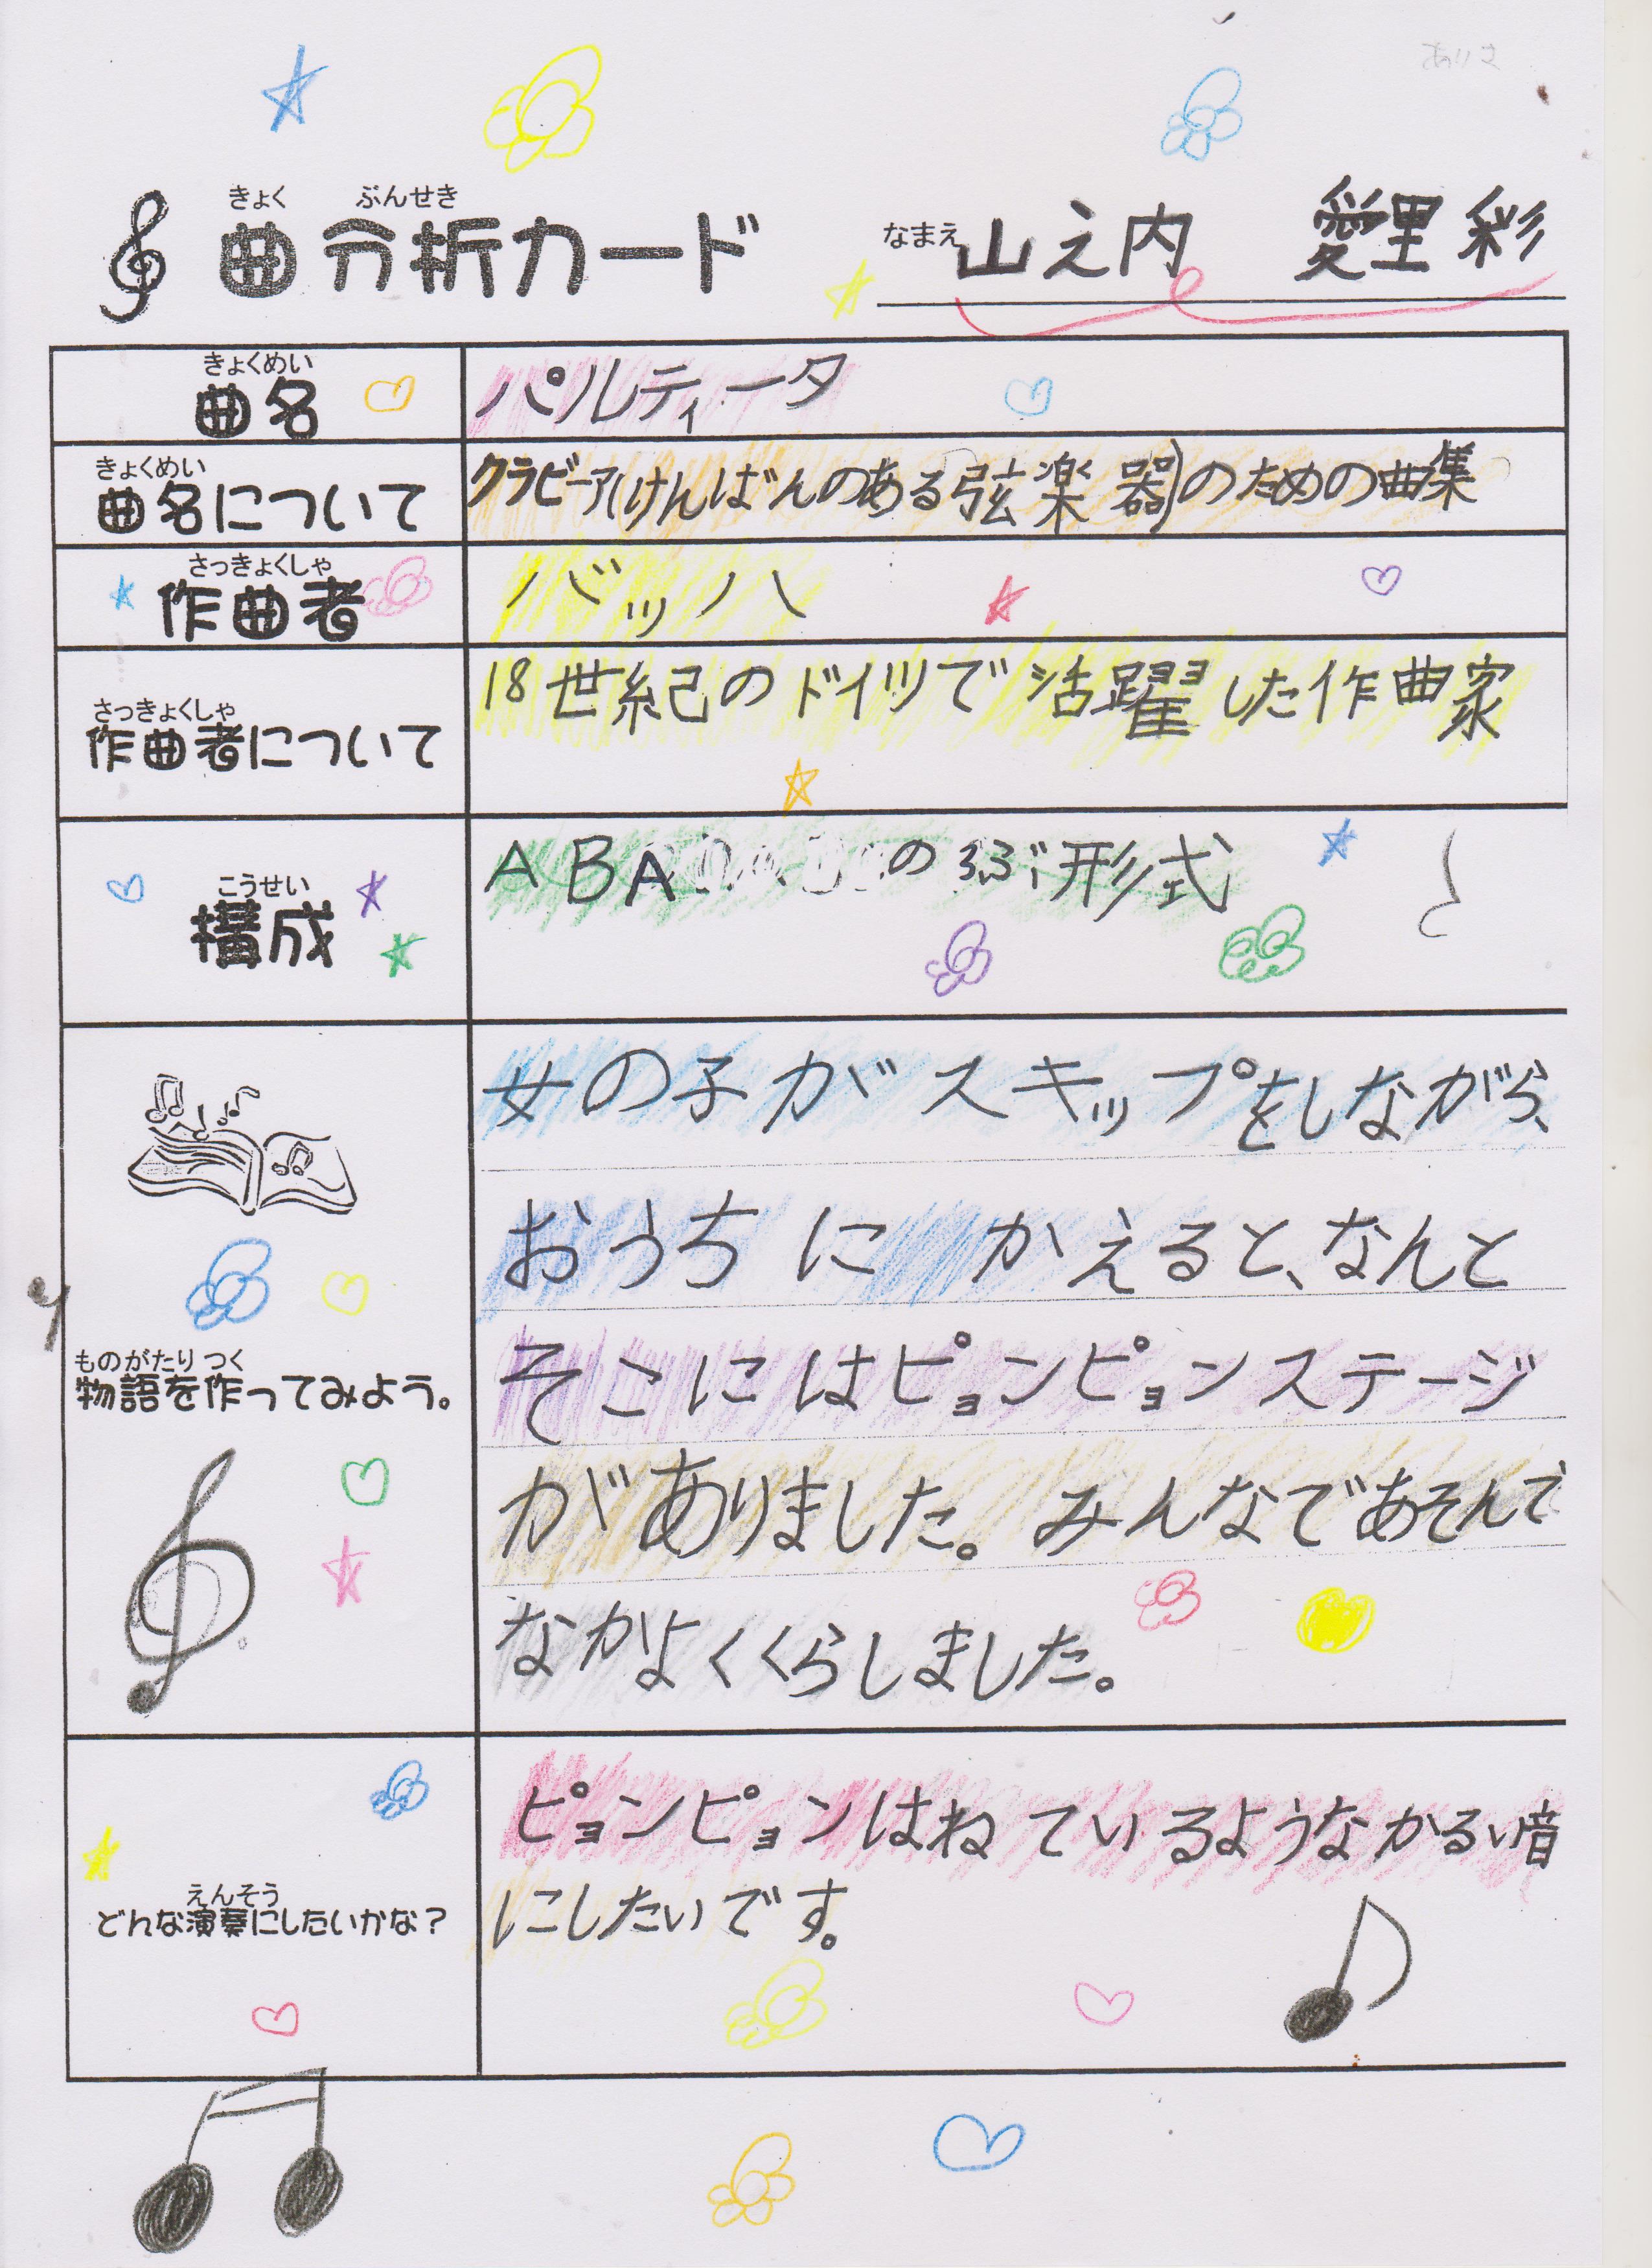 ありさ
きょく ぶんせき
曲分析カード
なまえ 山之内 愛里彩
きょくめい
曲名
パルティータ
きょくめい
曲名について
クラビーア(けんばんのある弦楽器)のための曲集
さっきょくしゃ
作曲者
バッハ
さっきょくしゃ
作曲者について
18世紀のドイツで活躍した作曲家
こうせい
構成
ABAの3ぶ形式
ものがたり つく
物語を作ってみよう。
女の子がスキップをしながら、
おうちに かえると、なんと
そこにはピョンピョンステージ
がありました。みんなであそんで
なかよくくらしました。
えんそう
どんな演奏にしたいかな?
ピョンピョンはねているようなかるい音
にしたいです。